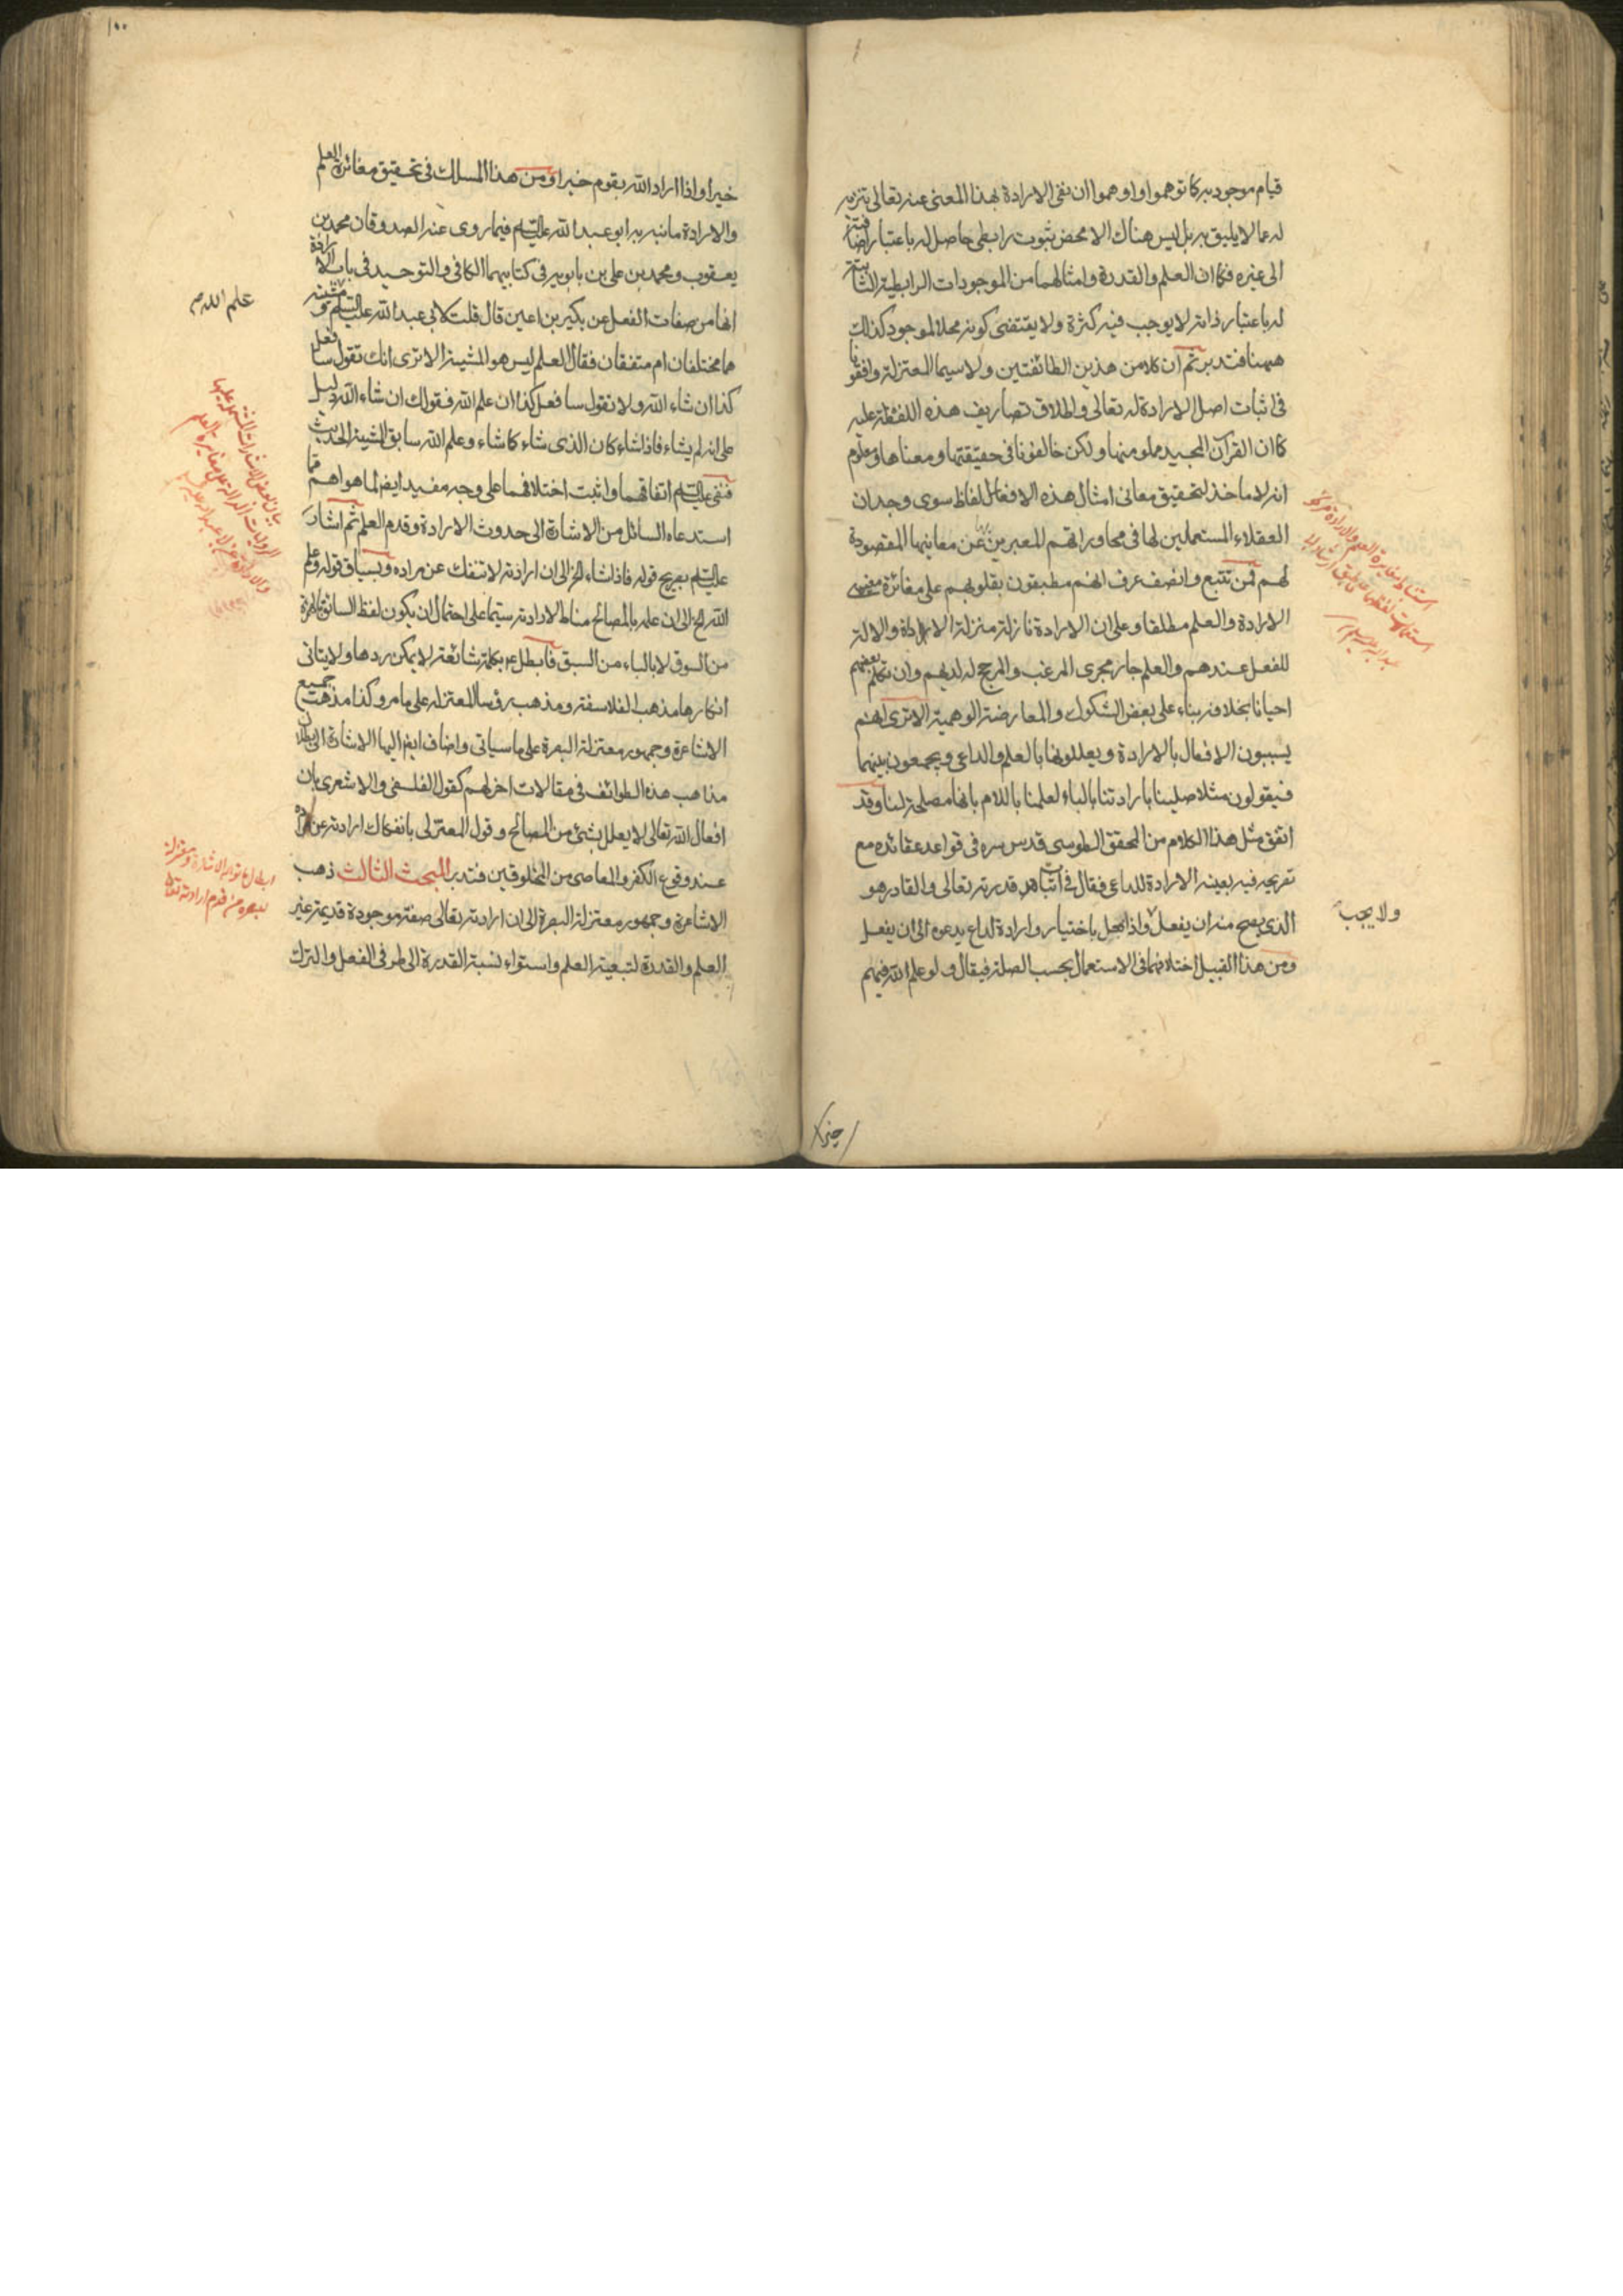 قيام موجود به كما توهموا او اوهموا ان نفى الارادة بهذا المعنى عنه تعالى تنزيه
له عما لا يليق به بل ليس هناك الا محض ثبوت رابطى حاصل له باعتبار اضافته
الى غيره فكما ان العلم والقدرة وامثالهما من الموجودات الرابطية الثابتة
له باعتبار ذاته لا يوجب فيه كثرة ولا يقتضى كونه محلا لموجود كذلك
ههنا فتدبر ثم ان كلا من هذين الطائفتين ولا سيما المعتزلة وافقونا
فى اثبات اصل الارادة له تعالى واطلاق تصاريف هذه اللفظة عليه
كما ان القرآن المجيد مملو منها ولكن خالفونا فى حقيقتها ومعناها ومعلوم
انه لا ماخذ لتحقيق معانى امثال هذه الالفاظ سوى وجدان
العقلاء المستعملين لها فى محاوراتهم المعبرين بها عن معانيها المقصودة
لهم فمن تتبع وانصف عرف انهم مطبقون بقلوبهم على مغائرة مفهومى
الارادة والعلم مطلقا وعلى ان الارادة نازلة منزلة الاداة والالة
للفعل عندهم والعلم جار مجرى المرغب والمرجح له لديهم وان تكلم بعضهم
احيانا بخلافه بناء على بعض الشكوك والمعارضة الوهمية الا ترى انهم
يسببون الافعال بالارادة ويعللونها بالعلم والداعى ويجمعون بينهما
فيقولون مثلا صلينا بارادتنا بالباء لعلمنا باللام بانها مصلحة لنا وقد
اتفق مثل هذا الكلام من المحقق الطوسى قدس سره فى قواعد عقائده مع
تصريحه فيه بعينية الارادة للداعى فقال فى اثبات قدرته تعالى والقادر هو
الذى يصح منه ان يفعل واذا فعل باختيار وارادة لداع يدعوه الى ان يفعل
ولا يجب
ومن هذا القبيل اختلافهما فى الاستعمال بحسب الصلة فيقال ولو علم الله فيهم
خيرا
١٠٠
خيرا واذا اراد الله بقوم خيرا ومن هذا المسلك فى تحقيق مغائرة العلم
والارادة ما نبه به ابو عبد الله عليه السلم فيما روى عنه الصدوقان محمد بن
يعقوب ومحمد بن على بن بابويه فى كتابيهما الكافى والتوحيد فى باب الارادة
انها من صفات الفعل عن بكير بن اعين قال قلت لابى عبد الله عليه السلم ومشيته
علم الله
هما مختلفان ام متفقان فقال العلم ليس هو المشية الا ترى انك تقول سافعل
كذا ان شاء الله ولا تقول سافعل كذا ان علم الله فقولك ان شاء الله دليل
على انه لم يشاء فاذا شاء كان الذى شاء كما شاء وعلم الله سابق المشية الحديث
فنفى عليه السلم اتفاقهما واثبت اختلافهما على وجه مفيد ايضا لما هو اهم مما
استدعاه السائل من الاشارة الى حدوث الارادة وقدم العلم ثم اشار
عليه السلم بصريح قوله فاذا شاء الخ الى ان ارادته لا تنفك عن مراده وبسياق قوله وعلم
الله الخ الى ان علمه بالمصالح مناط لارادته سيما على احتمال ان يكون لفظ السائق بالهمزة
من السوق لا بالباء من السبق فابطل ع بكلمة شائعة لا يمكن ردها ولا يتاتى
انكارها مذهب الفلاسفة ومذهب رؤسا المعتزله على ما مر وكذا مذهب جميع
الاشاعرة وجمهور معتزلة البصرة على ما سياتى واضاف ايضا اليها الاشارة الى بطلان
مذاهب هذه الطوائف فى مقالات اخر لهم كقول الفلسفى والاشعرى بان
افعال الله تعالى لا يعلل بشئ من المصالح وقول المعتزلى بانفكاك ارادته عن مراده
عند وقوع الكفر والمعاصى من المخلوقين فتدبر المبحث الثالث ذهب
الاشاعرة وجمهور معتزلة البصرة الى ان ارادته تعالى صفة موجودة قديمة غير
العلم والقدرة لتبعية العلم واستواء نسبة القدرة الى طرفى الفعل والترك